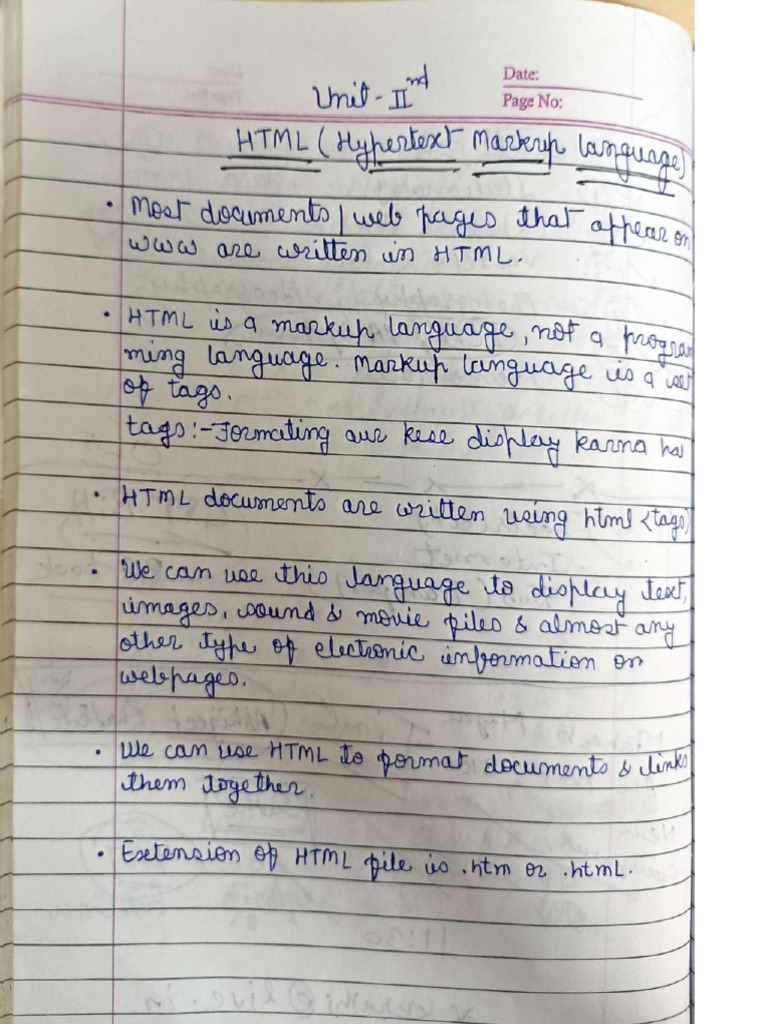 Date:
Unit - II nd
Page No:
HTML ( Hypertext Markup language)
• Most documents / web pages that appear on
www are written in HTML.
• HTML is a markup language, not a program
ming language. Markup language is a set
of tags.
tags:- Formating aur kese display karna hai
• HTML documents are written using html <tags>
• We can use this language to display text,
images, sound & movie files & almost any
other type of electronic information on
webpages.
• We can use HTML to format documents & links
them together.
• Extension of HTML file is .htm or .html.